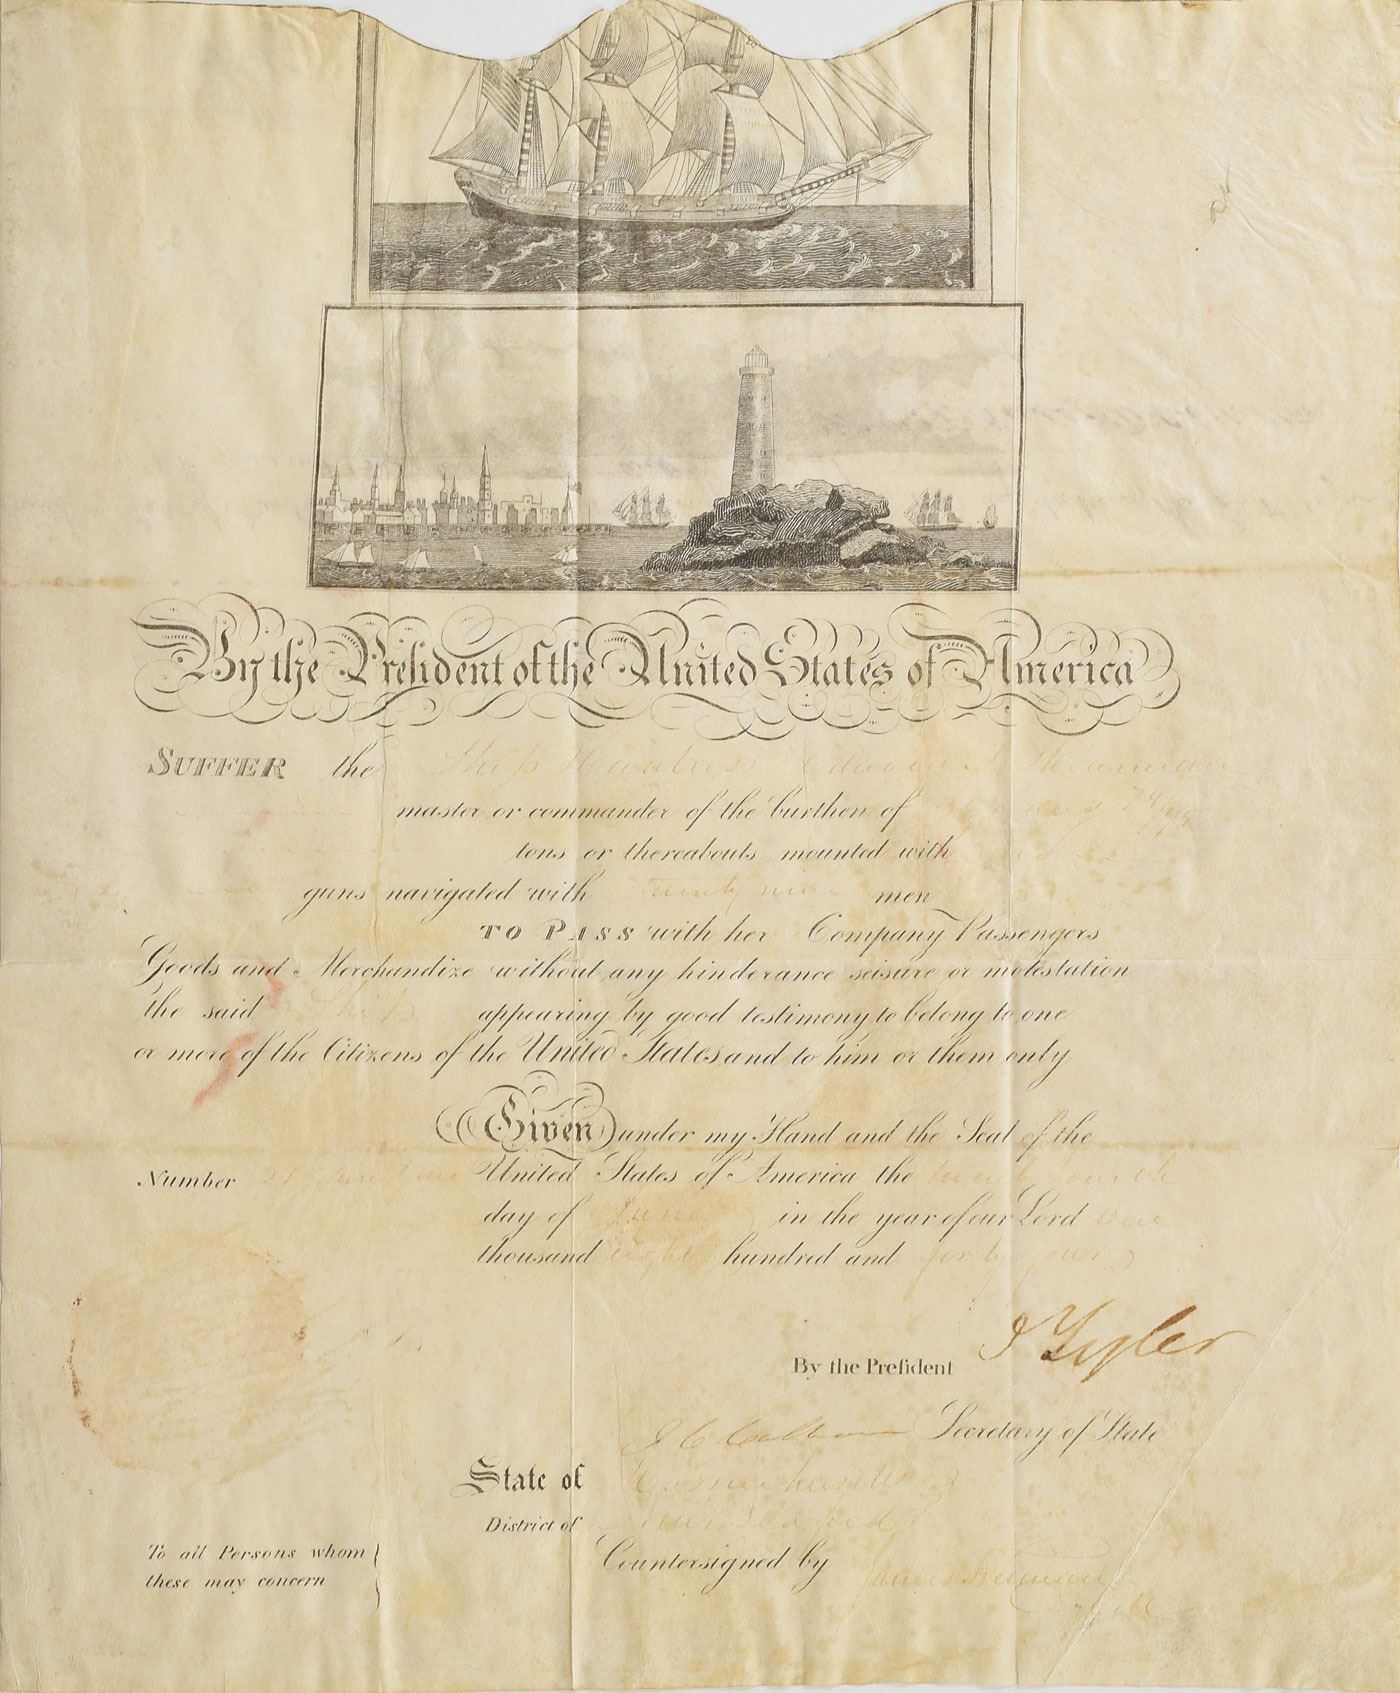 By the President of the United States of America
SUFFER the Ship
master or commander of the burthen of
tons or thereabouts mounted with
guns navigated with twenty nine men
TO PASS with her Company Passengers
Goods and Merchandize without any hinderance seisure or molestation
the said Ship appearing by good testimony to belong to one
or more of the Citizens of the United States, and to him or them only
Given under my Hand and the Seal of the
Number United States of America the twenty fourth
day of June in the year of our Lord one
thousand eight hundred and forty four
J Tyler
By the President
J C Calhoun Secretary of State
State of Massachusetts
District of New Bedford
To all Persons whom
these may concern
Countersigned by